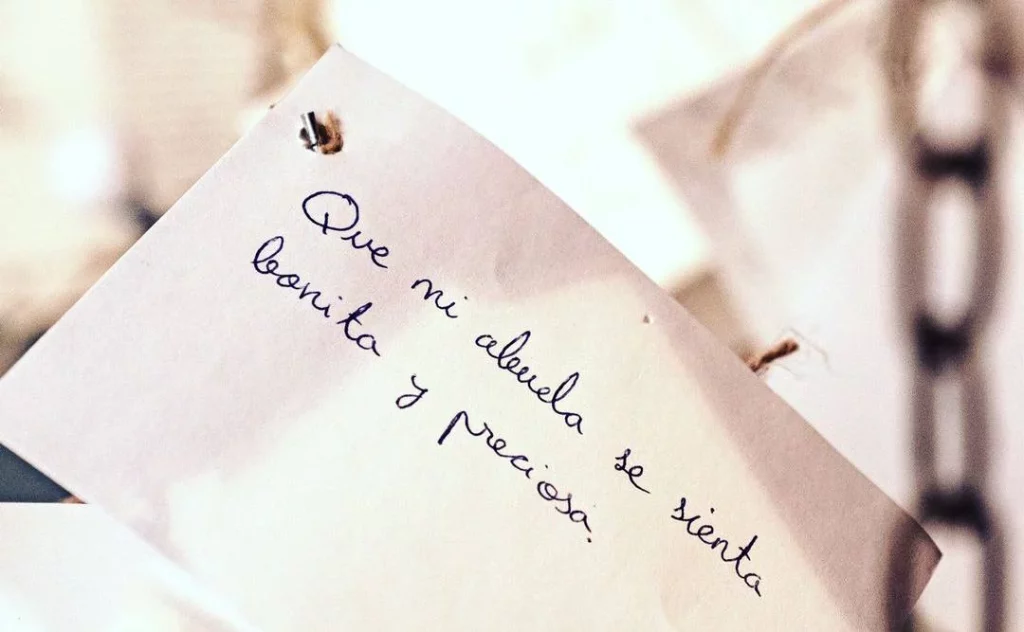 Que mi abuela se sienta
bonita y preciosa.